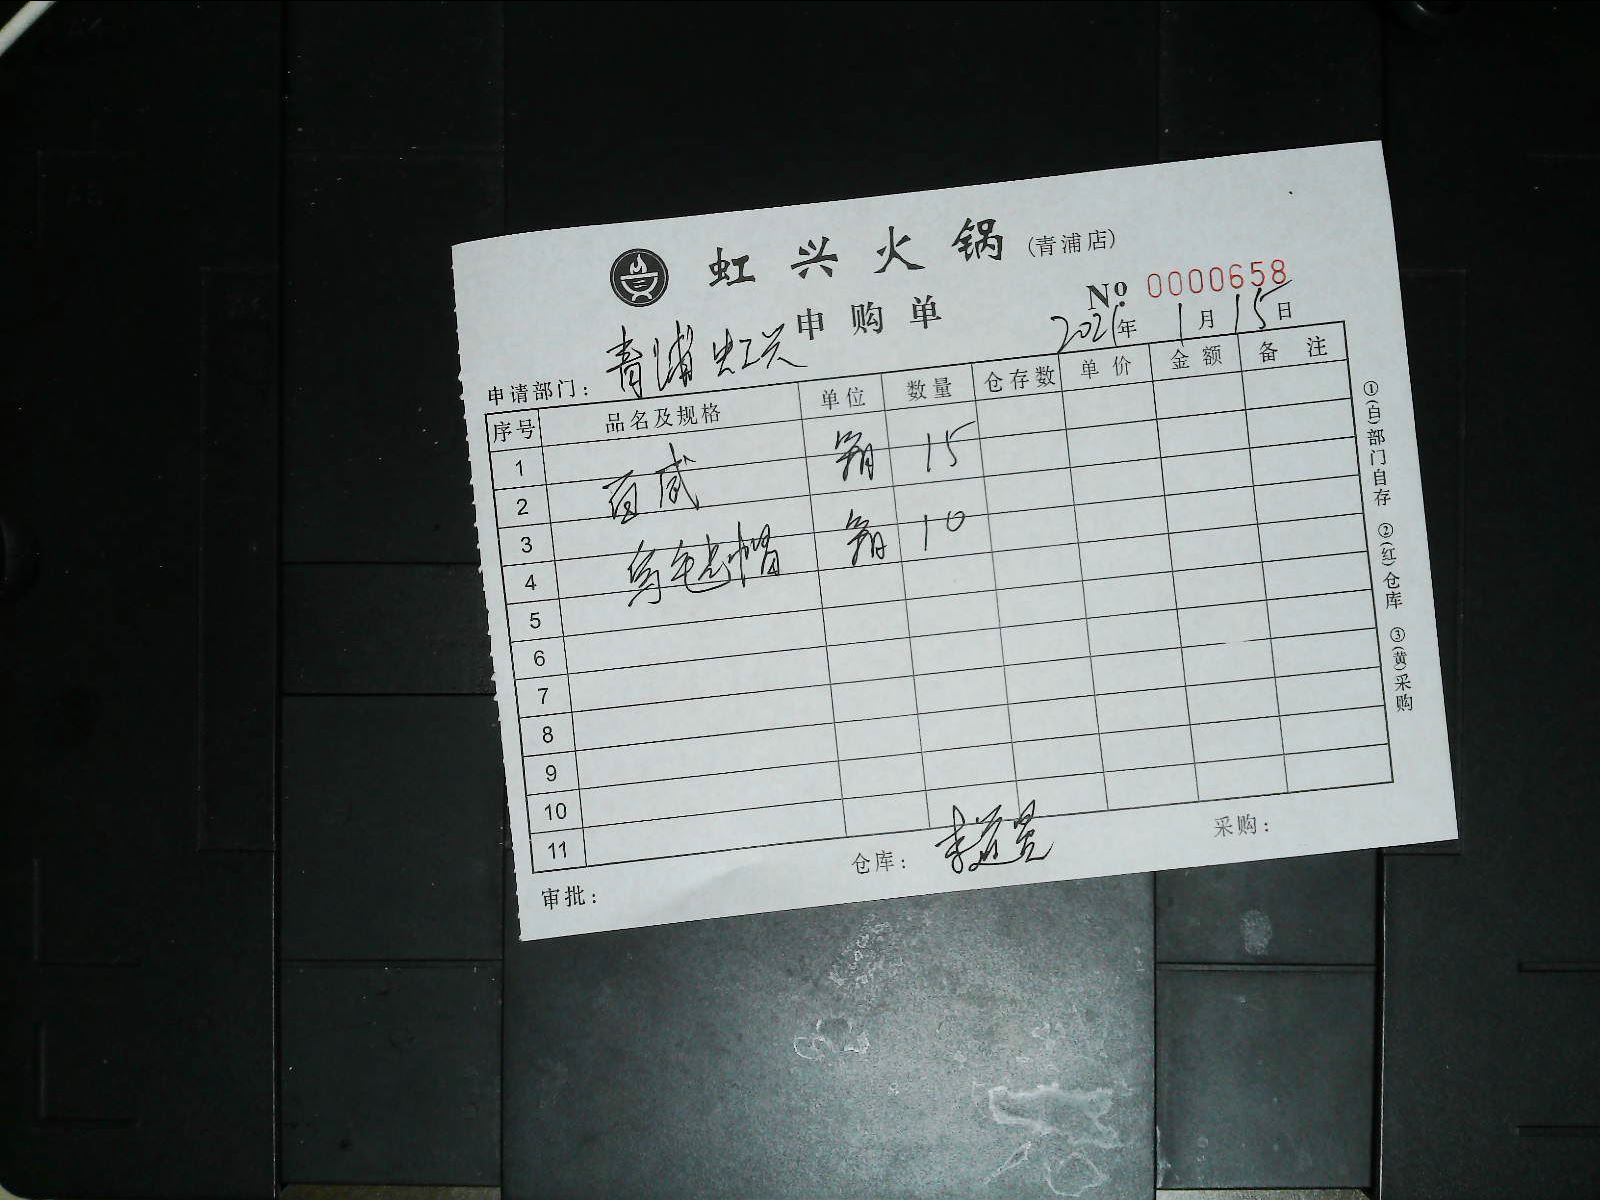 虹兴火锅(青浦店)
申购单
№ 0000658
申请部门: 青浦虹兴
2021年1月15日
序号 品名及规格 单位 数量 仓存数 单价 金额 备注
1
2 百威 箱 15
3
4 乌毛 箱 10
5
6
7
8
9
10
11
审批:
仓库: 李
采购:
①(白)部门自存 ②(红)仓库 ③(黄)采购